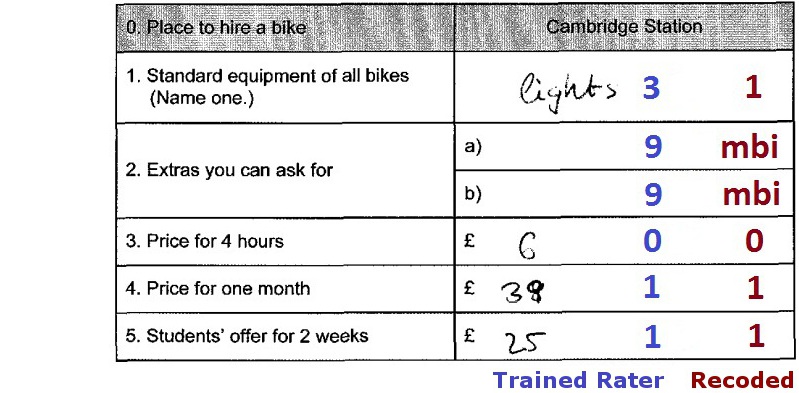 0. Place to hire a bike Cambridge Station
1. Standard equipment of all bikes
(Name one.) lights 3 1
2. Extras you can ask for
a) 9 mbi
b) 9 mbi
3. Price for 4 hours £ 6 0 0
4. Price for one month £ 38 1 1
5. Students' offer for 2 weeks £ 25 1 1
Trained Rater Recoded